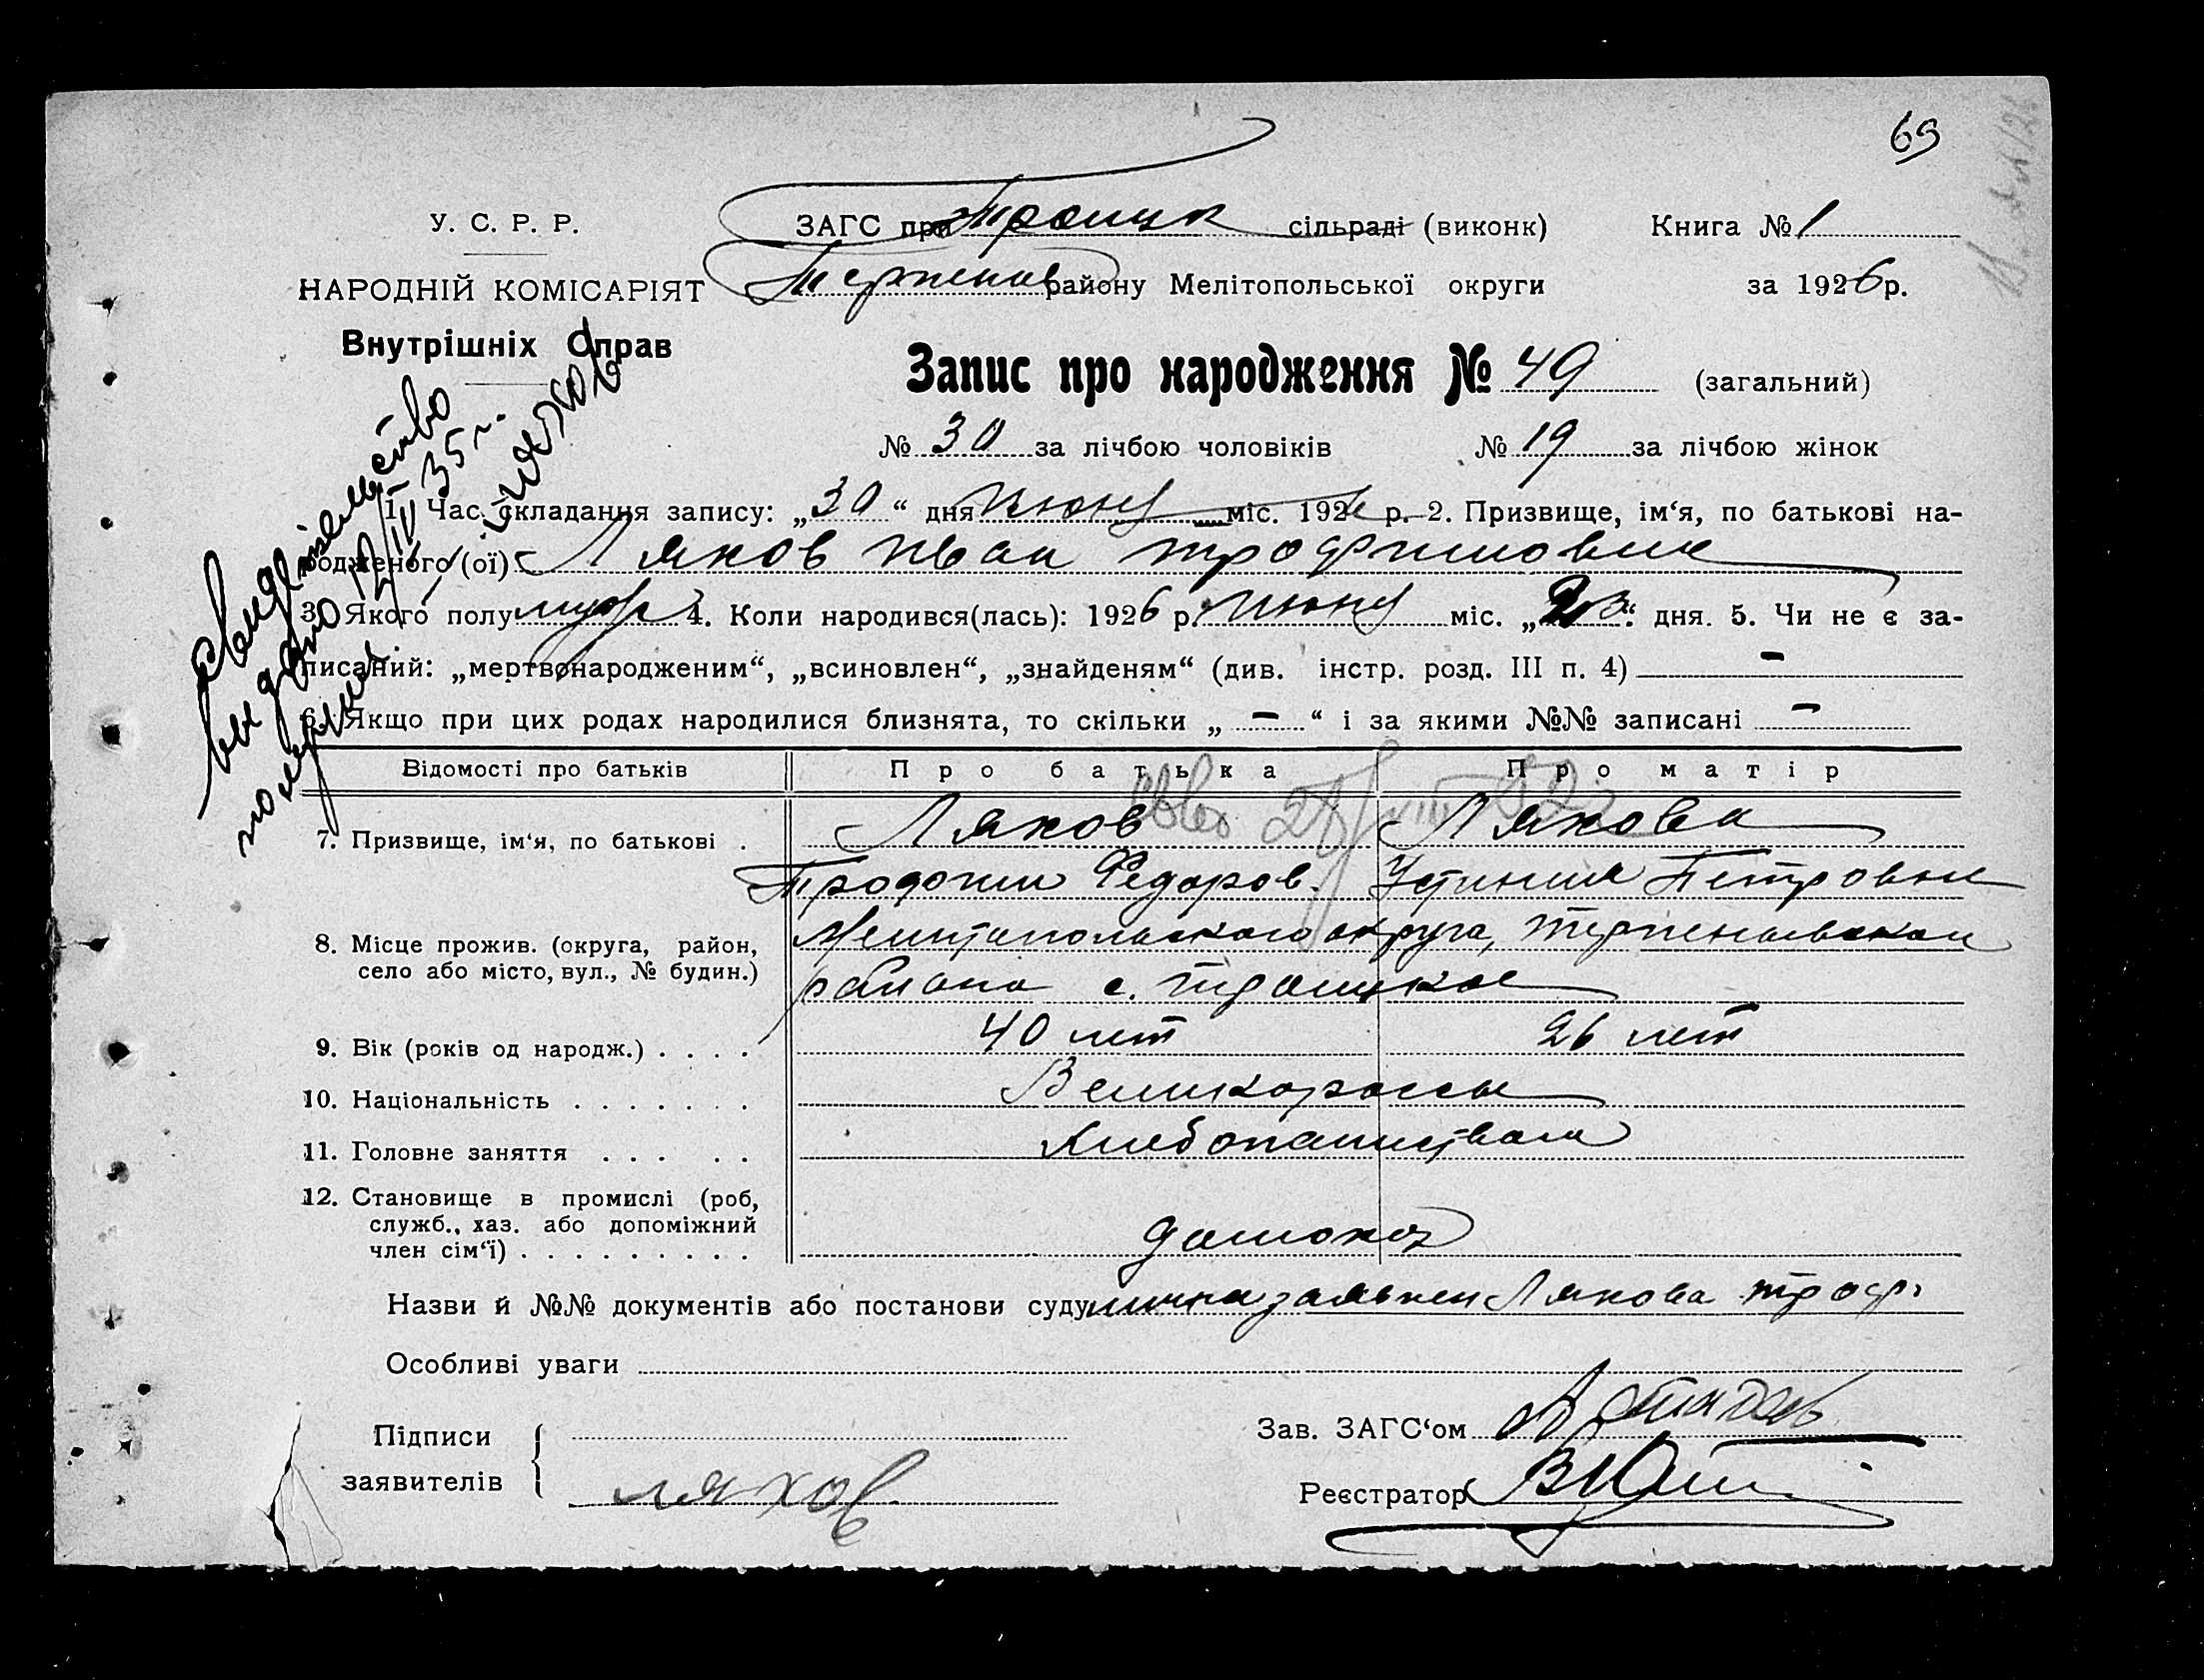 69
У. С. Р. Р.
ЗАГС при Троицк сільраді (виконк)
Книга № 1
НАРОДНІЙ КОМІСАРІЯТ
Терпенов району Мелітопольської округи
за 1926 р.
Внутрішніх Справ
Запис про народження № 49 (загальний)
№ 30 за лічбою чоловіків № 19 за лічбою жінок
1. Час складання запису: „30“ дня июня міс. 1926 р. 2. Призвище, ім‘я, по батькові на-
родженого (ої) Ляхов Иван Трофимович
3. Якого полу муж 4. Коли народився(лась): 1926 р. июня міс. „23“ дня. 5. Чи не є за-
писаний: „мертвонародженим“, „всиновлен“, „знайденям“ (див. інстр. розд. III п. 4) –
6. Якщо при цих родах народилися близнята, то скільки „ – “ і за якими №№ записані –
Свидетельство
выдано 12/IV 35 г.
Відомості про батьків
Про батька
Про матір
7. Призвище, ім‘я, по батькові .
Ляхов
Ляхова
Трофим Федоров.
Устиния Петровна
8. Місце прожив. (округа, район,
село або місто, вул., № будин.)
Мелитопольского округа, Терпеньевского
района с. Троицкое
9. Вік (років од народж.) . . . .
40 лет
26 лет
10. Національність . . . . . . .
Великороссы
11. Головне заняття . . . . .
Хлебопашеством
12. Становище в промислі (роб,
служб., хаз. або допоміжний
член сім‘ї) . . . . . . . . .
домохоз
Назви й №№ документів або постанови суду личная заявлен Ляхова Троф.
Особливі уваги
Підписи
заявителів
Ляхов
Зав. ЗАГС‘ом
Реєстратор